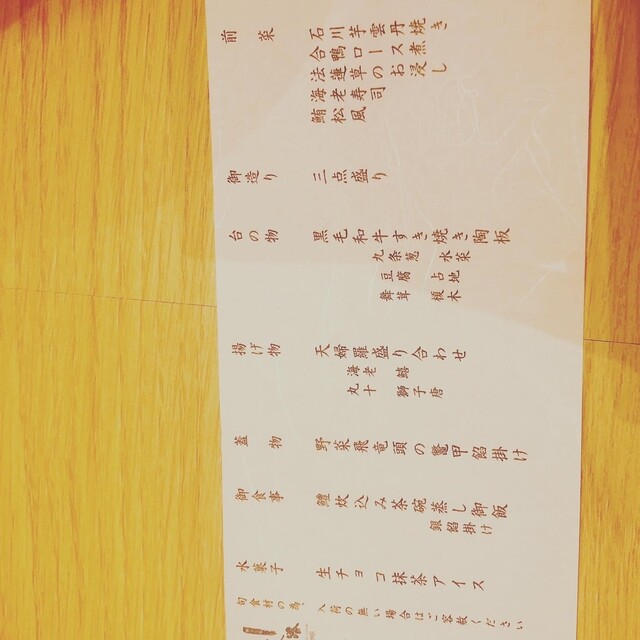 前菜
石川芋雲丹焼き
合鴨ロース煮
法蓮草のお浸し
海老寿司
鮪松風
御造り
三点盛り
台の物
黒毛和牛すき焼き陶板
九条葱 水菜
豆腐 占地
舞茸 榎木
揚げ物
天婦羅盛り合わせ
海老 鱚
丸十 獅子唐
蓋物
野菜飛竜頭の鼈甲餡掛け
御食事
鱧炊込み茶碗蒸し御飯
銀餡掛け
水菓子
生チョコ抹茶アイス
旬食材の為 入荷の無い場合はご容赦ください